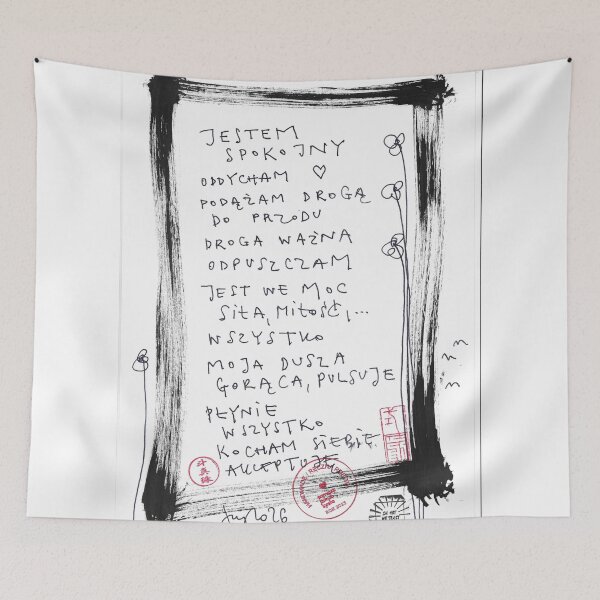 JESTEM
SPOKOJNY
ODDYCHAM ♡
PODĄŻAM DROGĄ
DO PRZODU
DROGA WAŻNA
ODPUSZCZAM
JEST WE MOC
SIŁA, MIŁOŚĆ,...
WSZYSTKO
MOJA DUSZA
GORĄCA, PULSUJE
PŁYNIE
WSZYSTKO
KOCHAM SIEBIE
AKCEPTUJĘ
2026